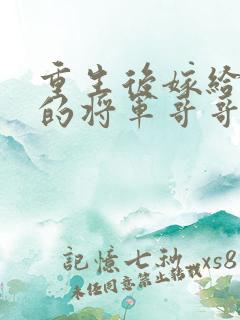 重生後嫁給
的將軍哥哥
記憶七秒 xs8
未經同意禁止轉載